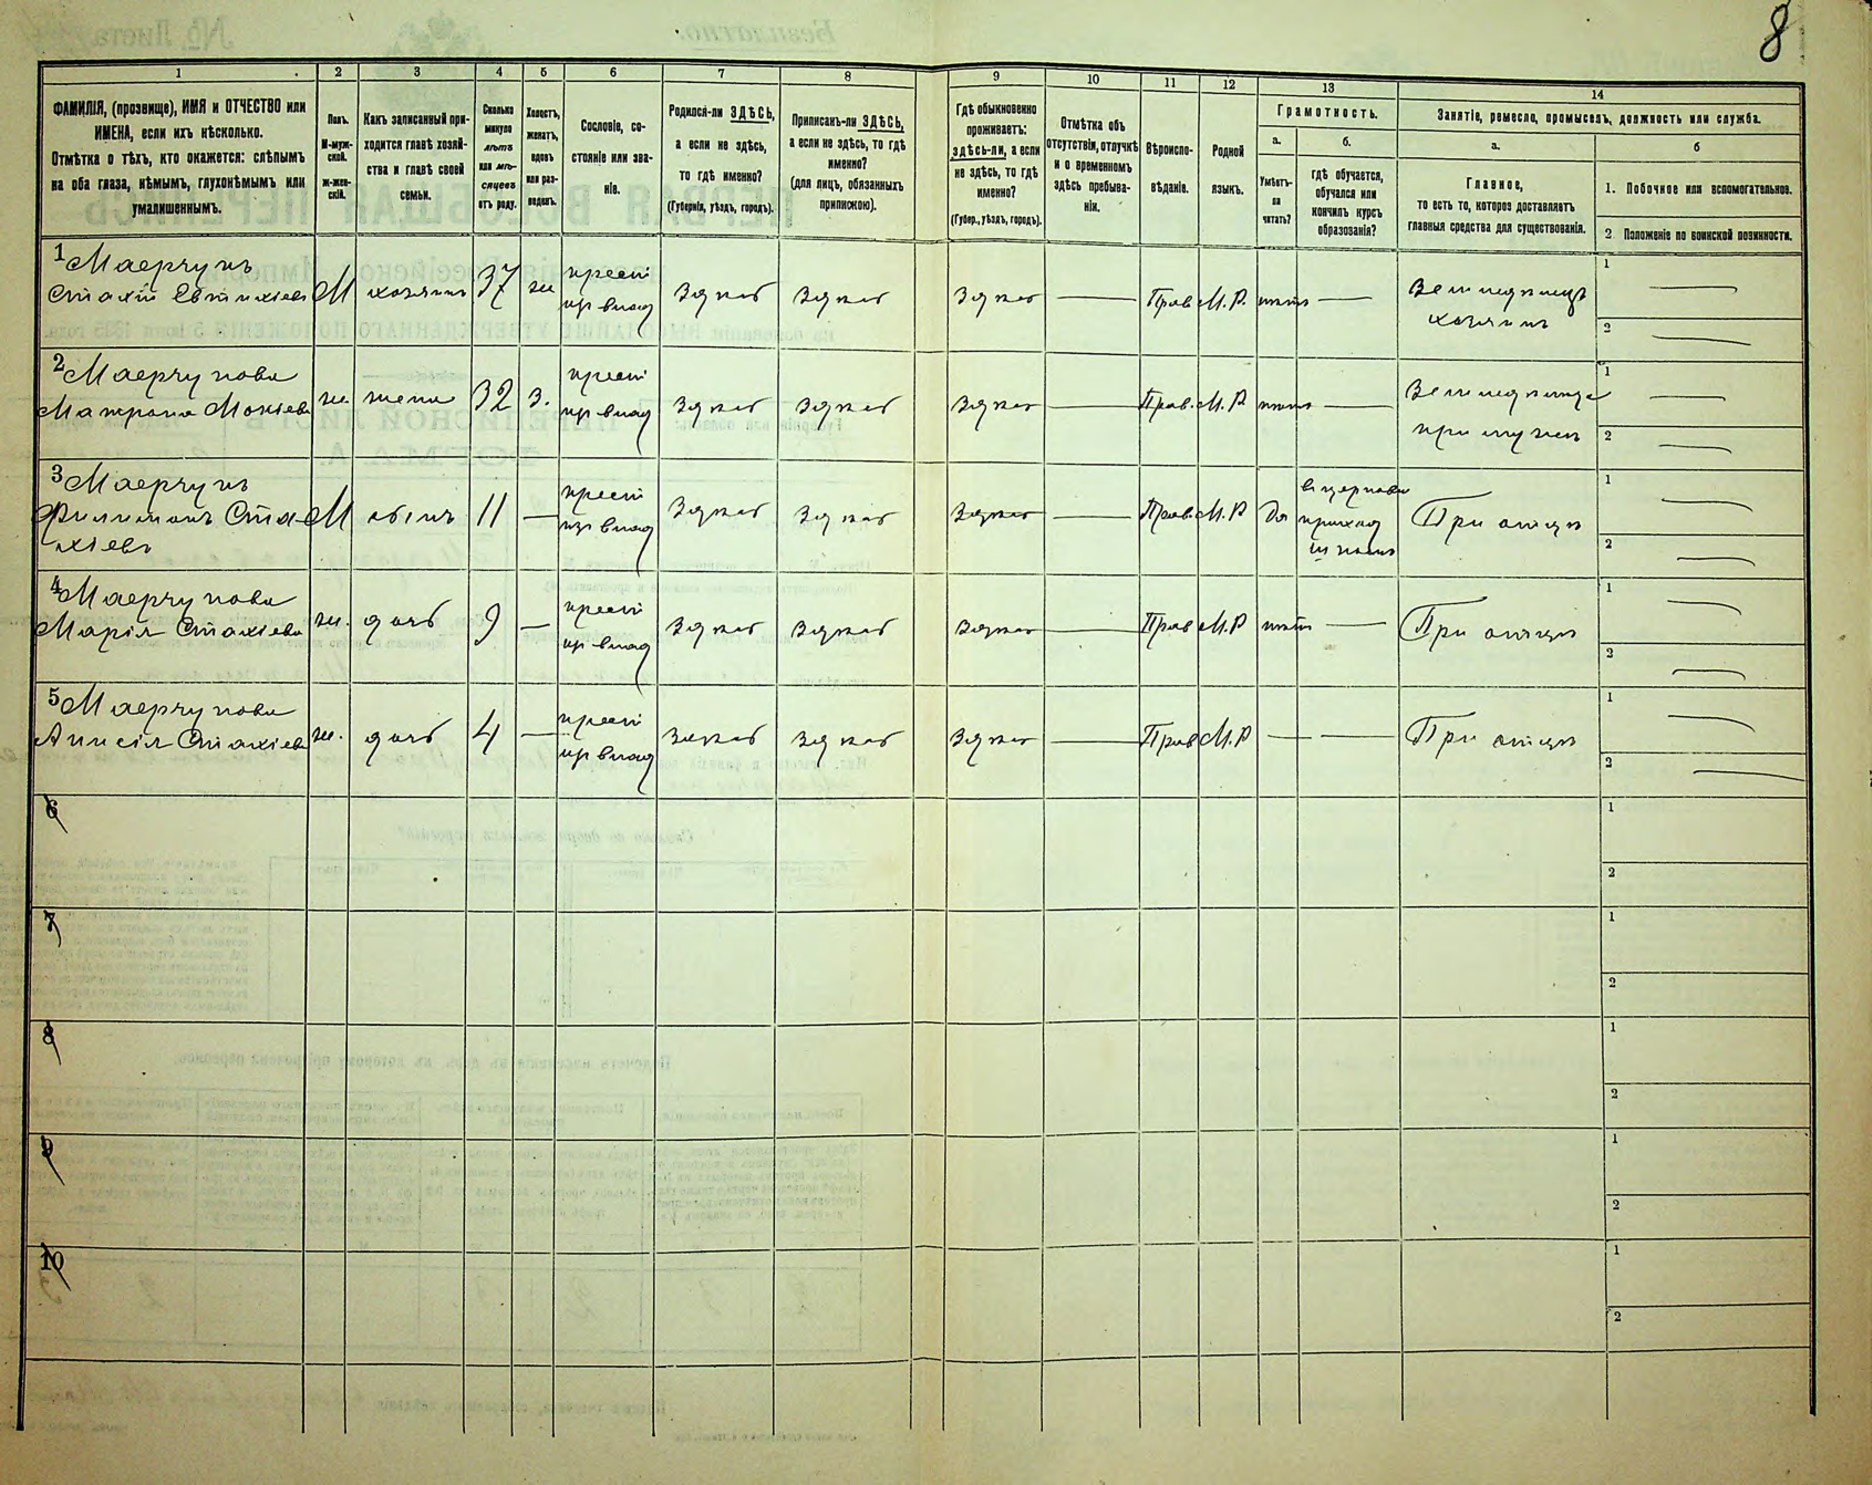 8
1 2 3 4 5 6 7 8 9 10 11 12 13 14
ФАМИЛІЯ, (прозвище), ИМЯ и ОТЧЕСТВО или
ИМЕНА, если ихъ нѣсколько.
Отмѣтка о тѣхъ, кто окажется: слѣпымъ
на оба глаза, нѣмымъ, глухонѣмымъ или
умалишеннымъ.
Полъ.
М-муж-
ской.
Ж-жен-
скій.
Какъ записанный при-
ходится главѣ хозяй-
ства и главѣ своей
семьи.
Сколько
минуло
лѣтъ
или мѣ-
сяцевъ
отъ роду.
Холостъ,
женатъ,
вдовъ
или раз-
веденъ.
Сословіе, со-
стояніе или зва-
ніе.
Родился-ли ЗДѢСЬ,
а если не здѣсь,
то гдѣ именно?
(Губернія, уѣздъ, городъ).
Приписанъ-ли ЗДѢСЬ,
а если не здѣсь, то гдѣ
именно?
(для лицъ, обязанныхъ
припискою).
Гдѣ обыкновенно
проживаетъ:
здѣсь-ли, а если
не здѣсь, то гдѣ
именно?
(Губер., уѣздъ, городъ).
Отмѣтка объ
отсутствіи, отлучкѣ
и о временномъ
здѣсь пребыва-
ніи.
Вѣроиспо-
вѣданіе.
Родной
языкъ.
Грамотность.
а.
Умѣетъ-
ли
читать?
б.
гдѣ обучается,
обучался или
кончилъ курсъ
образованія?
Занятіе, ремесло, промыселъ, должность или служба.
а.
Главное,
то есть то, которое доставляетъ
главныя средства для существованія.
б
1. Побочное или вспомогательное.
2 Положеніе по воинской повинности.
1 Маерчукъ
Стахій Евтихіевъ М хозяинъ 37 ж
крест
из влад
Здѣсь Здѣсь Здѣсь — Прав М.Р. нѣтъ —
Земледѣлецъ
хозяинъ
1 —
2 —
2 Маерчукова
Матрона Мокіева ж. жена 32 з.
крест
из влад
Здѣсь Здѣсь Здѣсь — Прав. М.Р нѣтъ —
Земледѣлица
при мужѣ
1 —
2 —
3 Маерчукъ
Филимонъ Ста-
хіевъ
М сынъ 11 —
крест
из влад
Здѣсь Здѣсь Здѣсь — Прав. М.Р Да
в церковн
приход
школѣ
При отцѣ
1 —
2 —
4 Маерчукова
Марія Стахіева ж. дочь 9 —
крест
из влад
Здѣсь Здѣсь Здѣсь — Прав М.Р нѣтъ — При отцѣ
1 —
2 —
5 Маерчукова
Анисія Стахіева ж. дочь 4 —
крест
из влад
Здѣсь Здѣсь Здѣсь — Прав М.Р — — При отцѣ
1 —
2 —
6
1
2
7
1
2
8
1
2
9
1
2
10
1
2